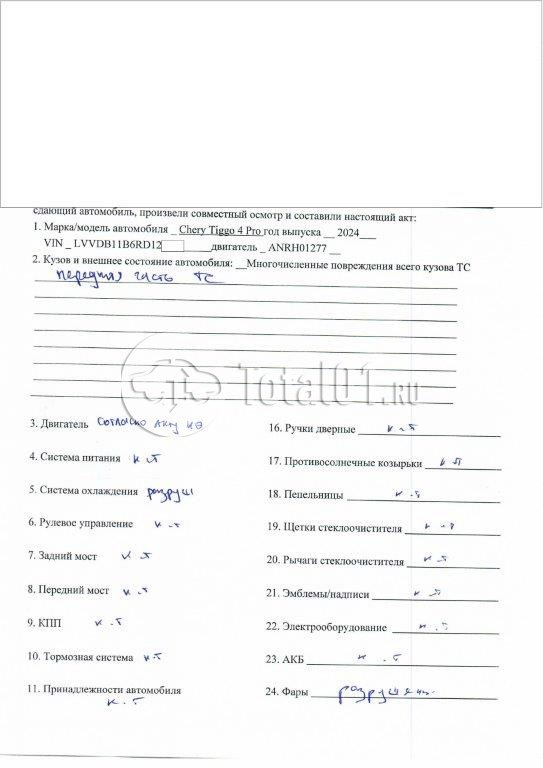 сдающий автомобиль, произвели совместный осмотр и составили настоящий акт:
1. Марка/модель автомобиля _ Chery Tiggo 4 Pro год выпуска __ 2024___
VIN _ LVVDB11B6RD12 _____двигатель _ ANRH01277 __
2. Кузов и внешнее состояние автомобиля: __Многочисленные повреждения всего кузова ТС
передняя часть ТС
Total01.RU
3. Двигатель согласно акту
4. Система питания к.т
5. Система охлаждения разруш
6. Рулевое управление к.т
7. Задний мост к.т
8. Передний мост к.т
9. КПП к.т
10. Тормозная система к.т
11. Принадлежности автомобиля
к.т
16. Ручки дверные к.т
17. Противосолнечные козырьки к.т
18. Пепельницы к.т
19. Щетки стеклоочистителя к.т
20. Рычаги стеклоочистителя к.т
21. Эмблемы/надписи к.т
22. Электрооборудование к.т
23. АКБ к.т
24. Фары разрушены